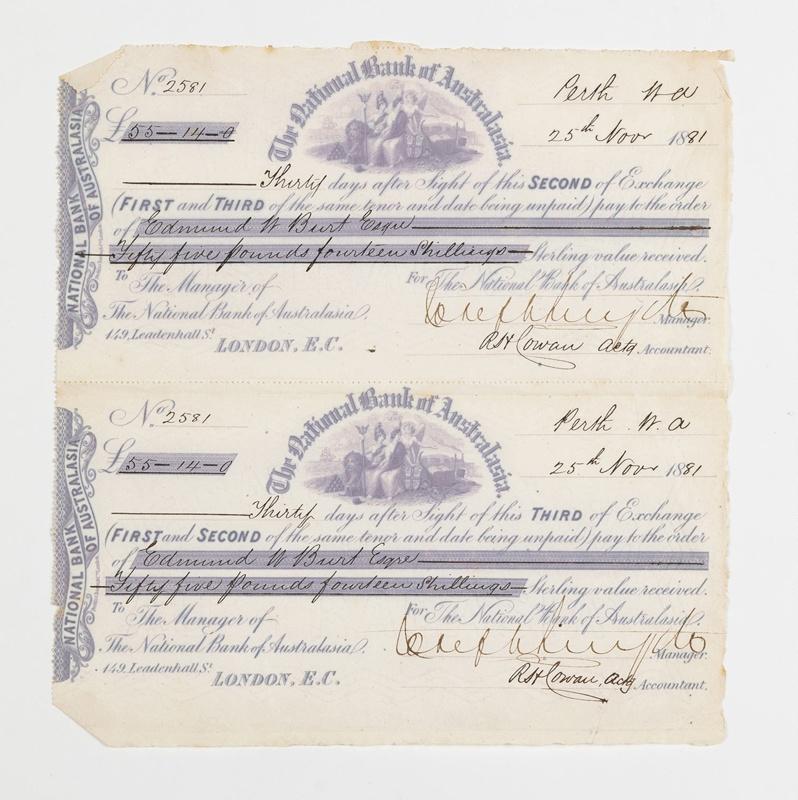 No. 2581
The National Bank of Australasia.
Perth W A
£55-14-0
25th Novr 1881
NATIONAL BANK OF AUSTRALASIA
Thirty days after Sight of this SECOND of Exchange
(FIRST and THIRD of the same tenor and date being unpaid) pay to the order
of Edmund W Burt Esqre
Fifty five pounds fourteen Shillings Sterling value received.
To The Manager of
For The National Bank of Australasia,
The National Bank of Australasia,
Manager.
149, Leadenhall St
LONDON, E.C.
RH Cowan actg Accountant.
No. 2581
The National Bank of Australasia.
Perth W. A
£55-14-0
25th Novr 1881
NATIONAL BANK OF AUSTRALASIA
Thirty days after Sight of this THIRD of Exchange
(FIRST and SECOND of the same tenor and date being unpaid) pay to the order
of Edmund W Burt Esqre
Fifty five pounds fourteen Shillings Sterling value received.
To The Manager of
For The National Bank of Australasia,
The National Bank of Australasia,
Manager.
149, Leadenhall St
LONDON, E.C.
RH Cowan, actg Accountant.